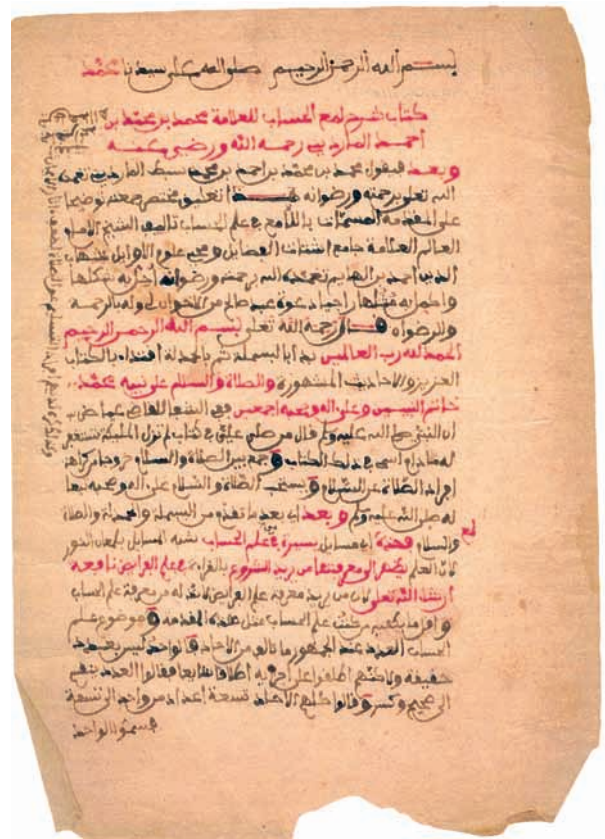 بسم الله الرحمن الرحيم صلى الله على سيدنا محمد
كتاب شرح لمع الحساب للعلامة محمد بن محمد بن
أحمد المارديني رحمه الله ورضي عنه
وبعد فيقول محمد بن محمد بن احمد بن محمد سبط المارديني تغمده
الله تعلى برحمته ورضوانه هذا تعليق مختصر جمعته توضيحا
على المقدمة المسمات باللامع في علم الحساب تاليف الشيخ الامام
العالم العلامة جامع اشتات الفضايل ومحيي علوم الاوايل شهاب
الدين احمد بن الهايم تغمده الله برحمته ورضوانه احل به
به راجيا دعوة عبد صالح من الاخوان لي وله بالرحمة
والرضوان قال رحمة الله تعلى بسم الله الرحمن الرحيم
الحمد لله رب العالمين بدا بالبسملة ثم بالحمدلة اقتداء بالكتاب
العزيز والاحاديث المشهورة والصلاة والسلام على نبيه محمد
خاتم النبيين وعلى اله وصحبه اجمعين ففي الشفا للقاضي عياض
ان النبي صلى الله عليه وسلم قال من صلى علي في كتاب لم تزل الملئكة تستغفر
له مادام اسمي في ذلك الكتاب وجمع بين الصلاة والسلام خروجا من كراهة
افراد الصلاة عن السلام ويستحب الصلاة والسلام على اله وصحبه تبعا
له صلى الله عليه وسلم وبعد اي بعد ما تقدم من البسملة والحمدلة والصلاة
والسلام فهذه اي مسايل يسيرة في علم الحساب شبه المسايل بلمعان النور
لمع
كان العلم يضطر الى معرفتها من يريد الشروع بالقراءة في علم الفرايض نافعة
ان شاء الله تعلى فان من يريد معرفة علم الفرايض لا بد له من معرفة علم الحساب
واقل ما يكفيه من علم الحساب مثل هذه المقدمة وموضوع علم
الحساب العدد عند الجمهور ما تالف من الاحاد فالواحد ليس بعدد
حقيقة اطلاقا شايعا فقالوا العدد ينقسم
الى صحيح وكسر وقالوا الاحاد تسعة اعداد من واحد الى تسعة